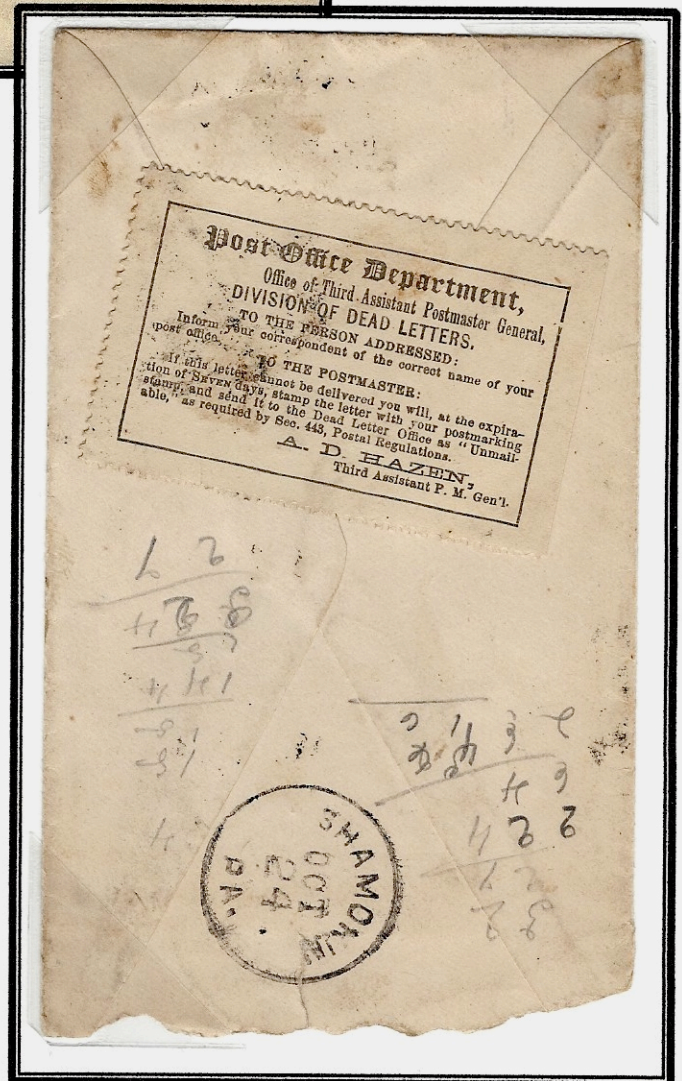 Post Office Department,
Office of Third Assistant Postmaster General,
DIVISION OF DEAD LETTERS.
TO THE PERSON ADDRESSED:
Inform your correspondent of the correct name of your
post office.
TO THE POSTMASTER:
If this letter cannot be delivered you will, at the expira-
tion of SEVEN days, stamp the letter with your postmarking
stamp, and send it to the Dead Letter Office as "Unmail-
able," as required by Sec. 443, Postal Regulations.
A. D. HAZEN,
Third Assistant P. M. Gen'l.
SHAMOKIN
OCT
24
PA.